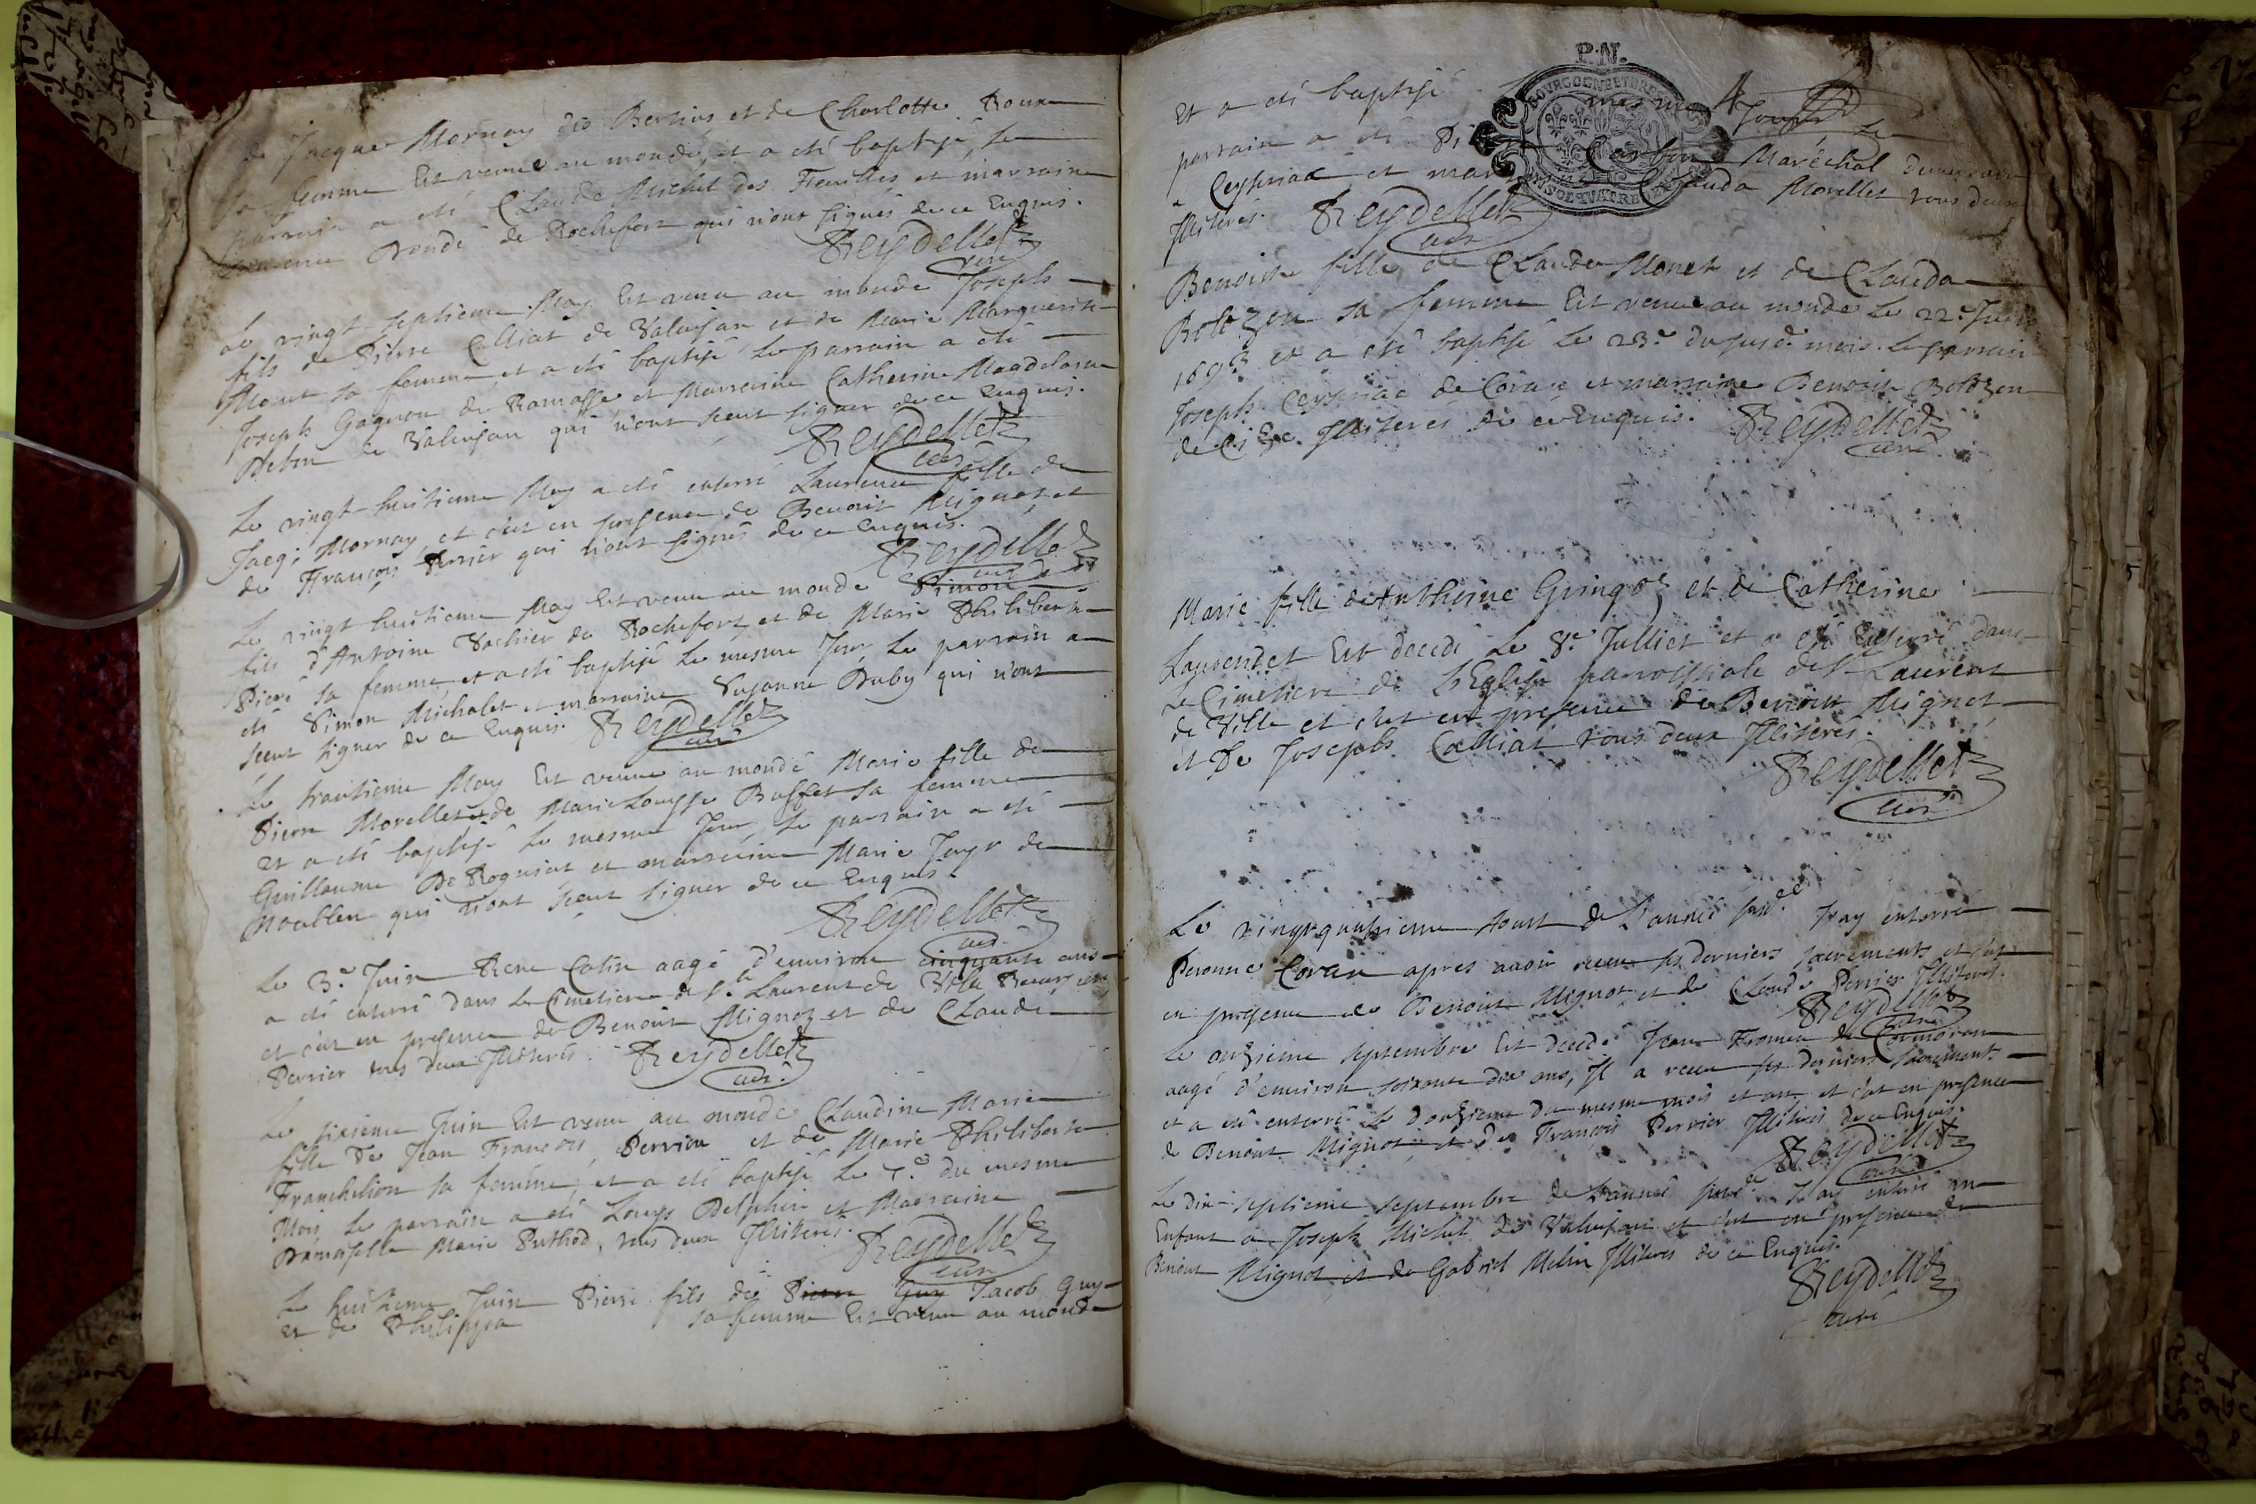 de Jacque Mornay dio Bertins et de Charlotte Roux
sa femme Est venue au monde, et a eté baptisé, le
parrain a eté Claude Michel des Feuilles et marraine
Laurence de Rochefort qui n'ont signés de ce Enquis.
Reydellet
curé
Le vingt septieme May Est venu au monde Joseph
fils de Pierre Calliat de Valuisan et de Marie Marguerite
Monet sa femme, et a eté baptisé le parrain a eté
Joseph Gagneu de Ramasse et Marraine Catherine Magdelaine
Debon de Valuisan qui n'ont sceut signer de ce Enquis.
Reydellet
curé
Le vingt huitieme May a eté enterré Laurence fille de
Jacq; Mornay, et c'est en presence de Benoit Mignot et
de François Perrier qui n'ont signés de ce Enquis.
Reydellet
curé
Le vingt huitieme May Est venu au monde Simon
fils d'Antoine Vachier de Rochefort, et de Marie Philiberte
sa femme, et a eté baptisé le mesme Jour, Le parrain a
eté Simon Michalet et marraine Susanne Duby qui n'ont
sceut signer de ce Enquis. Reydellet
curé
Le trentieme May Est venue au monde Marie fille de
Pierre Morellet et de Marie Louysse Buffet sa femme
et a eté baptisé le mesme Jour, le parrain a eté
Guillaume De Rogniat et marraine Marie de
qui n'ont sceut signer de ce Enquis.
Reydellet
curé
Le 3.e Juin Rene Catin aagé d'environ cinquante ans
a eté enterré dans le Cimetiere de St. Laurent de Ville
et c'est en presence de Benoit Mignot et de Claude
Perrier tous deux Illiterés. Reydellet
curé
Le sixieme Juin Est venu au monde Claudine Marie
fille de Jean François Perrier et de Marie Philiberte
Franchelion sa femme, et a eté baptisé le 7.e du mesme
Mois, le parrain a eté Louys Delphin et Marraine
Damoiselle Marie Puthod, tous deux Illiterés.
Reydellet
curé
Le huitieme Juin Pierre fils de Pierre Guy Jacob Guy
et de Philippa sa femme Est venu au monde
Et a eté baptisé mesme Jour, Le
parrain a eté Pi Maréchal
Ceyseriac et mar Clauda Morellet tous deux
Illiterés. Reydellet
curé
P.N.
BOURGOGNE ET BRES
Benoitte fille de Claude Monet et de Clauda
Bolozon sa femme Est venue au monde Le 22.e Juin
1693 et a eté baptisé le 23.e du susd. mois. Le parrain
Joseph Ceyseriac de Coran et marraine Benoitte Bolozon
de Cize. Illiteres de ce Enquis. Reydellet
curé
Marie fille de Anthoine Gringoz et de Catherine
Laurendet Est decedé Le 8.e Julliet et a eté Enterré dans
Le Cimetiere de L'Eglise parroissiale de St. Laurent
de Ville et c'est en presence de Benoit Mignot
et De Joseph Calliat tous deux Illiterés.
Reydellet
curé
Le vingtquatrieme Aoust de L'année susd. J'ay enterré
Peronne Coran apres avoir receu ses derniers sacrements et c'est
en presence de Benoit Mignot et de Claude Perrier Illiterés.
Reydellet
curé
Le onzieme septembre Est decedé Jean de Cormoran
aagé d'environ soixante dix ans, Il a receu ses derniers sacrements
et a eté enterré Le douzieme du mesme mois et an et c'est en presence
de Benoit Mignot et De François Perrier Illiterés de ce Enquis.
Reydellet
curé
Le dix-septieme septembre de L'année susd. J'ay enterré un
Enfant a Joseph Michel de Valuisan et c'est en presence de
Benoit Mignot et de Gabriel Melin Illiteres de ce Enquis.
Reydellet
curé